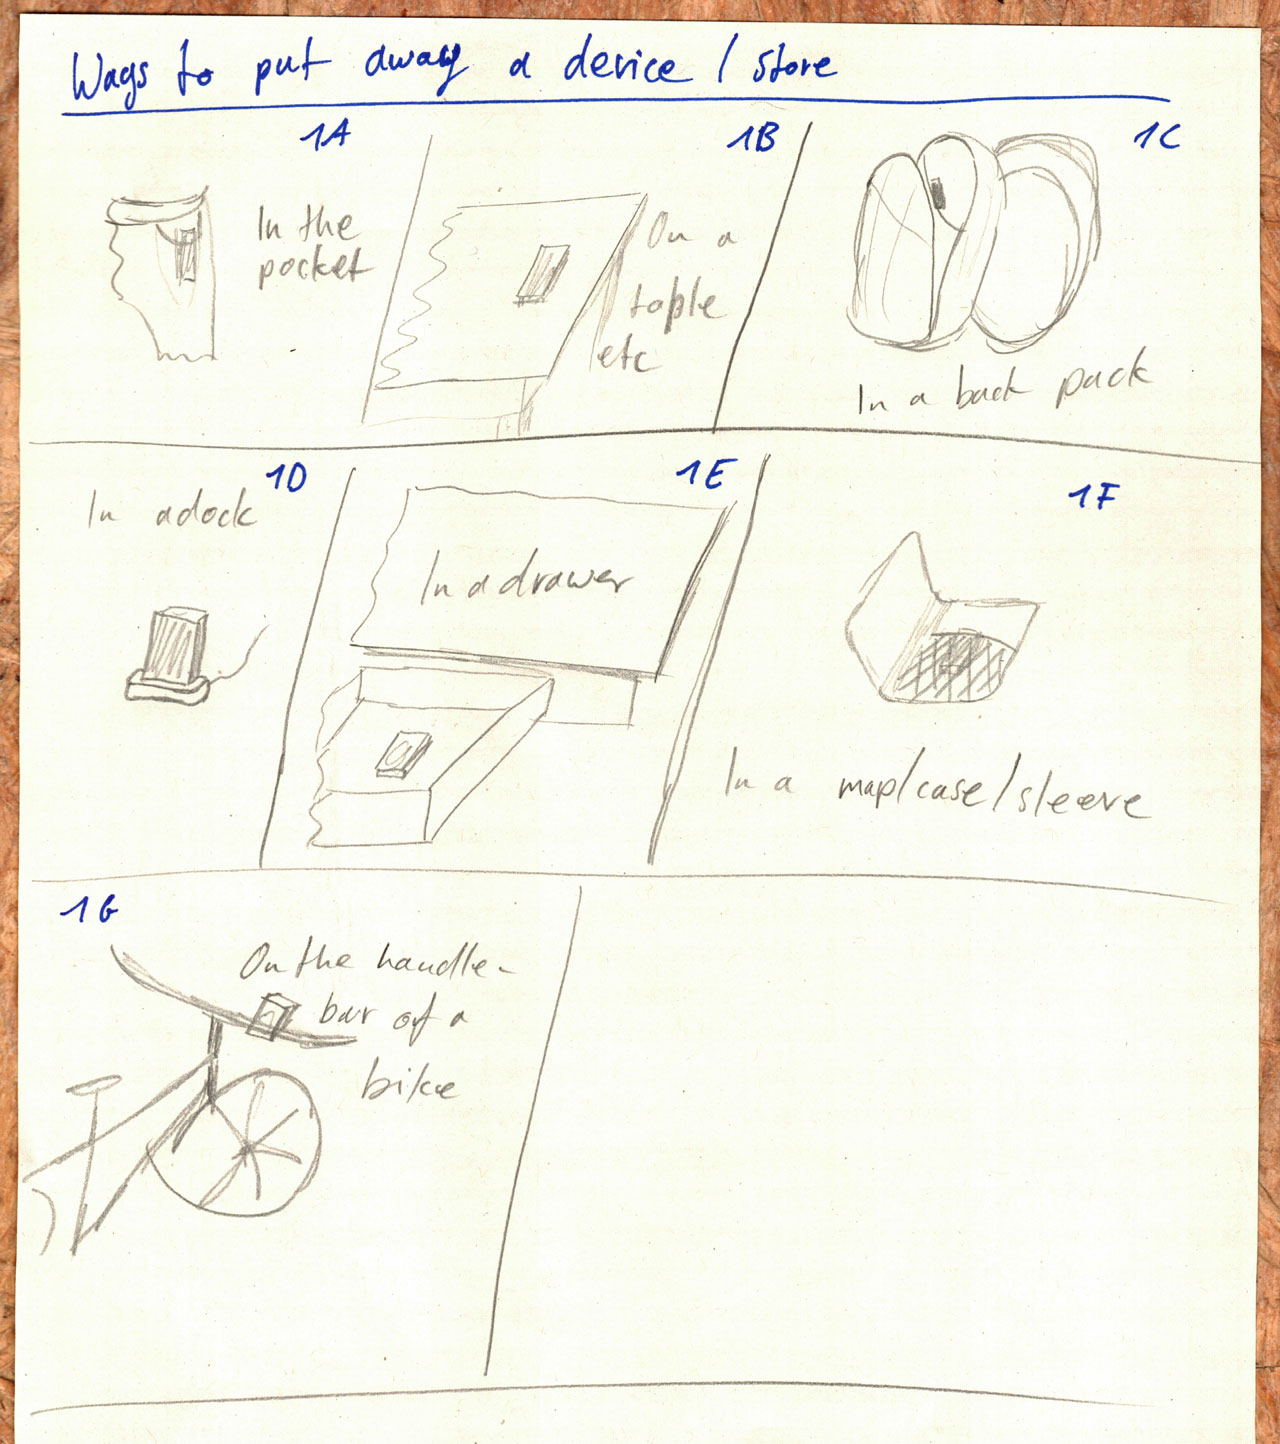 Ways to put away a device / store
1A
In the
pocket
1B
On a
table
etc
1C
In a back pack
1D
In a dock
1E
In a drawer
1F
In a map/case/sleeve
1G
On the handle-
bar of a
bike